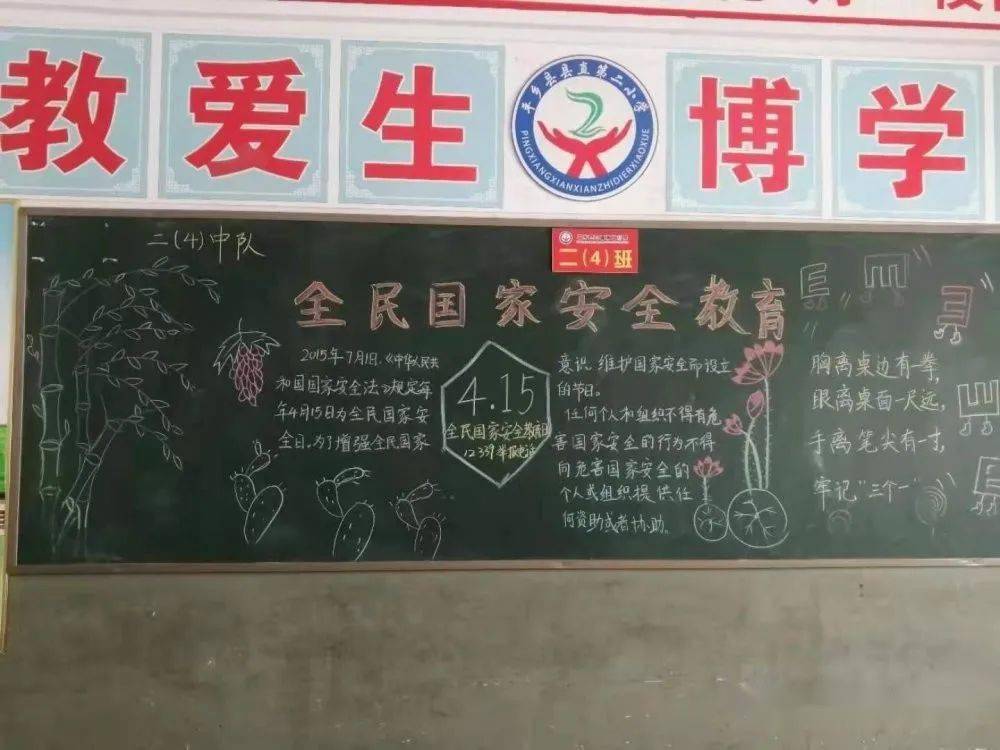 教爱生
平乡县县直第二小学
PINGXIANGXIANXIANZHIDIERXIAOXUE
博学
二(4)中队
二(4)班
全民国家安全教育
2015年7月1日,《中华人民共
和国国家安全法》规定每
年4月15日为全民国家安
全日。为了增强全民国家
4.15
全民国家安全教育日
12339举报电话
意识,维护国家安全而设立
的节日。
任何个人和组织不得有危
害国家安全的行为不得
向危害国家安全的
个人或组织提供任
何资助或者协助。
胸离桌边有一拳,
眼离桌面一尺远,
手离笔尖有一寸,
牢记"三个一"
E
E